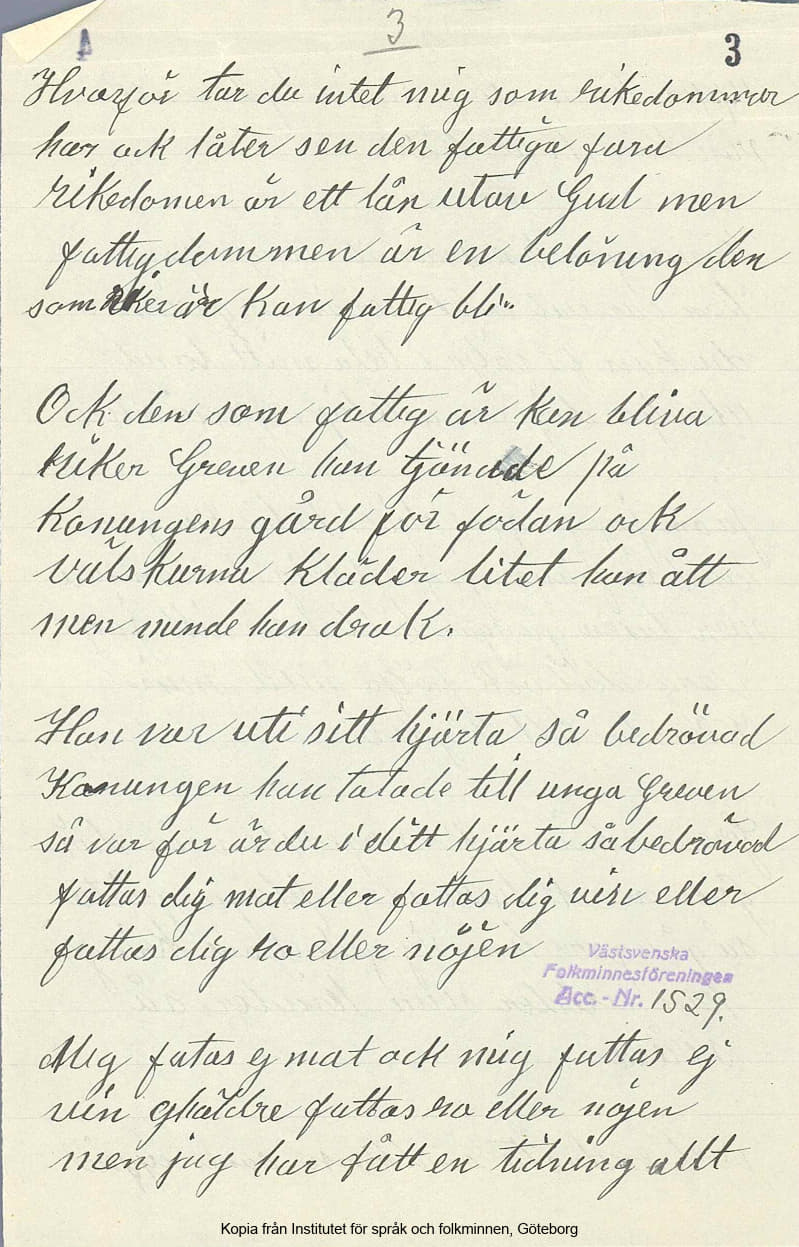 3
3
Hvarför tar du intet mig som rikedommar
har ock låter sen den fattiga fara
rikedomen är ett lån utav Gud men
fattigdommen är en belöning den
som riker är kan fattig bli"

Ock den som fattig är kan bliva
riker Greven han tjänade på
Konungens gård för födan ock
välskurna kläder litet han ått
men minde han drak.

Han var uti sitt hjärta så bedrövad
Konungen han talade till unga Greven
så var för är du i ditt hjärta så bedrövad
fattas dig mat eller fattas dig vin eller
fattas dig ro eller nöjen
Västsvenska
Folkminnesföreningen
Acc.-Nr. 1529.

Mig fatas ej mat ock mig fattas ej
vin ghäldre fattas ro eller nöjen
men jag har fått en tidning allt
Kopia från Institutet för språk och folkminnen, Göteborg